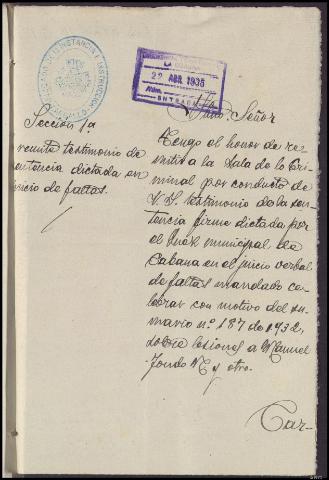 JUZGADO DE 1ª INSTANCIA E INSTRUCCIÓN
LA CORUÑA
22 ABR. 1935
ENTRADA
Sección 1ª
remite testimonio de
sentencia dictada en
juicio de faltas.
Iltmo. Señor
Tengo el honor de re-
mitir a la Sala de lo Cri-
minal por conducto de
V.S. testimonio de la sen-
tencia firme dictada por
el Juez municipal de
Cabana en el juicio verbal
de faltas mandado ce-
lebrar con motivo del su-
mario n.º 187 de 1932,
sobre lesiones a Manuel
y otro.
Car-